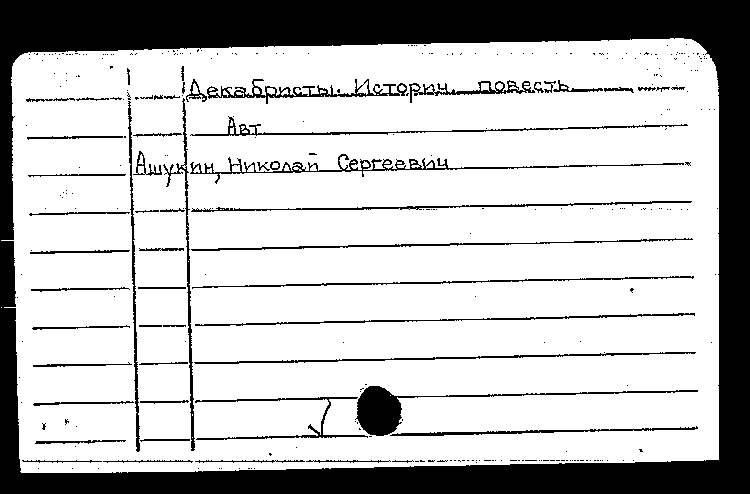 Декабристы. Историч. повесть
Авт
Ашукин, Николай Сергеевич